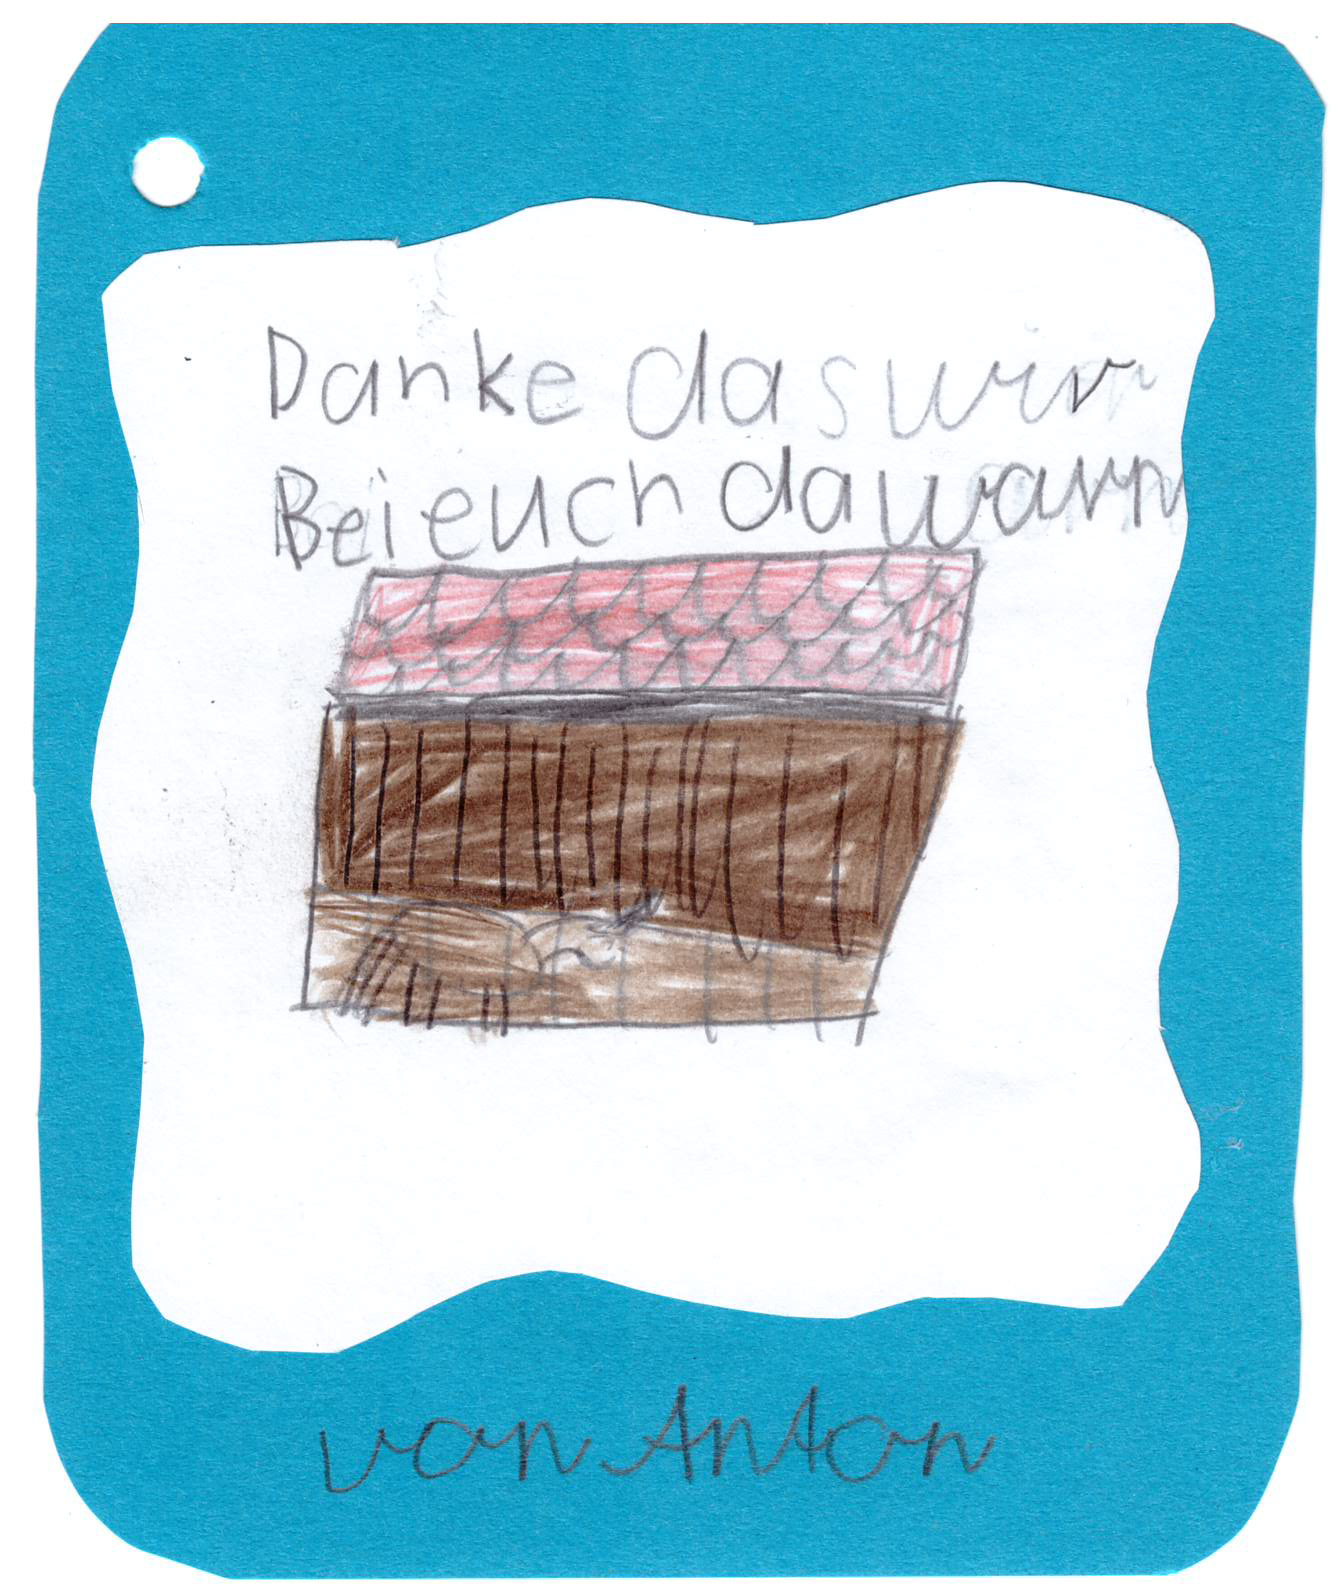 Danke das wir
Bei euch da warn
von Anton